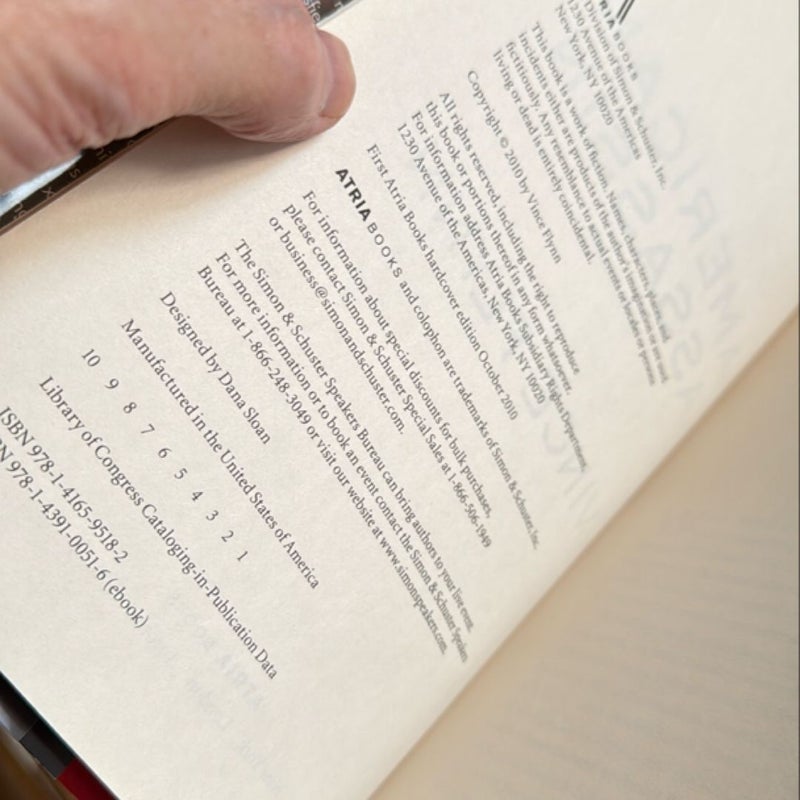 BOOKS
Division of Simon & Schuster, Inc.
1230 Avenue of the Americas
New York, NY 10020
This book is a work of fiction. Names, characters, places and
incidents either are products of the author's imagination or are used
fictitiously. Any resemblance to actual events or locales or persons
living or dead is entirely coincidental.
Copyright © 2010 by Vince Flynn
All rights reserved, including the right to reproduce
this book or portions thereof in any form whatsoever.
For information address Atria Books Subsidiary Rights Department,
1230 Avenue of the Americas, New York, NY 10020
First Atria Books hardcover edition October 2010
ATRIA BOOKS and colophon are trademarks of Simon & Schuster, Inc.
For information about special discounts for bulk purchases,
please contact Simon & Schuster Special Sales at 1-866-506-1949
or business@simonandschuster.com.
The Simon & Schuster Speakers Bureau can bring authors to your live event.
For more information or to book an event contact the Simon & Schuster Speakers
Bureau at 1-866-248-3049 or visit our website at www.simonspeakers.com.
Designed by Dana Sloan
Manufactured in the United States of America
10 9 8 7 6 5 4 3 2 1
Library of Congress Cataloging-in-Publication Data
ISBN 978-1-4165-9518-2
978-1-4391-0051-6 (ebook)